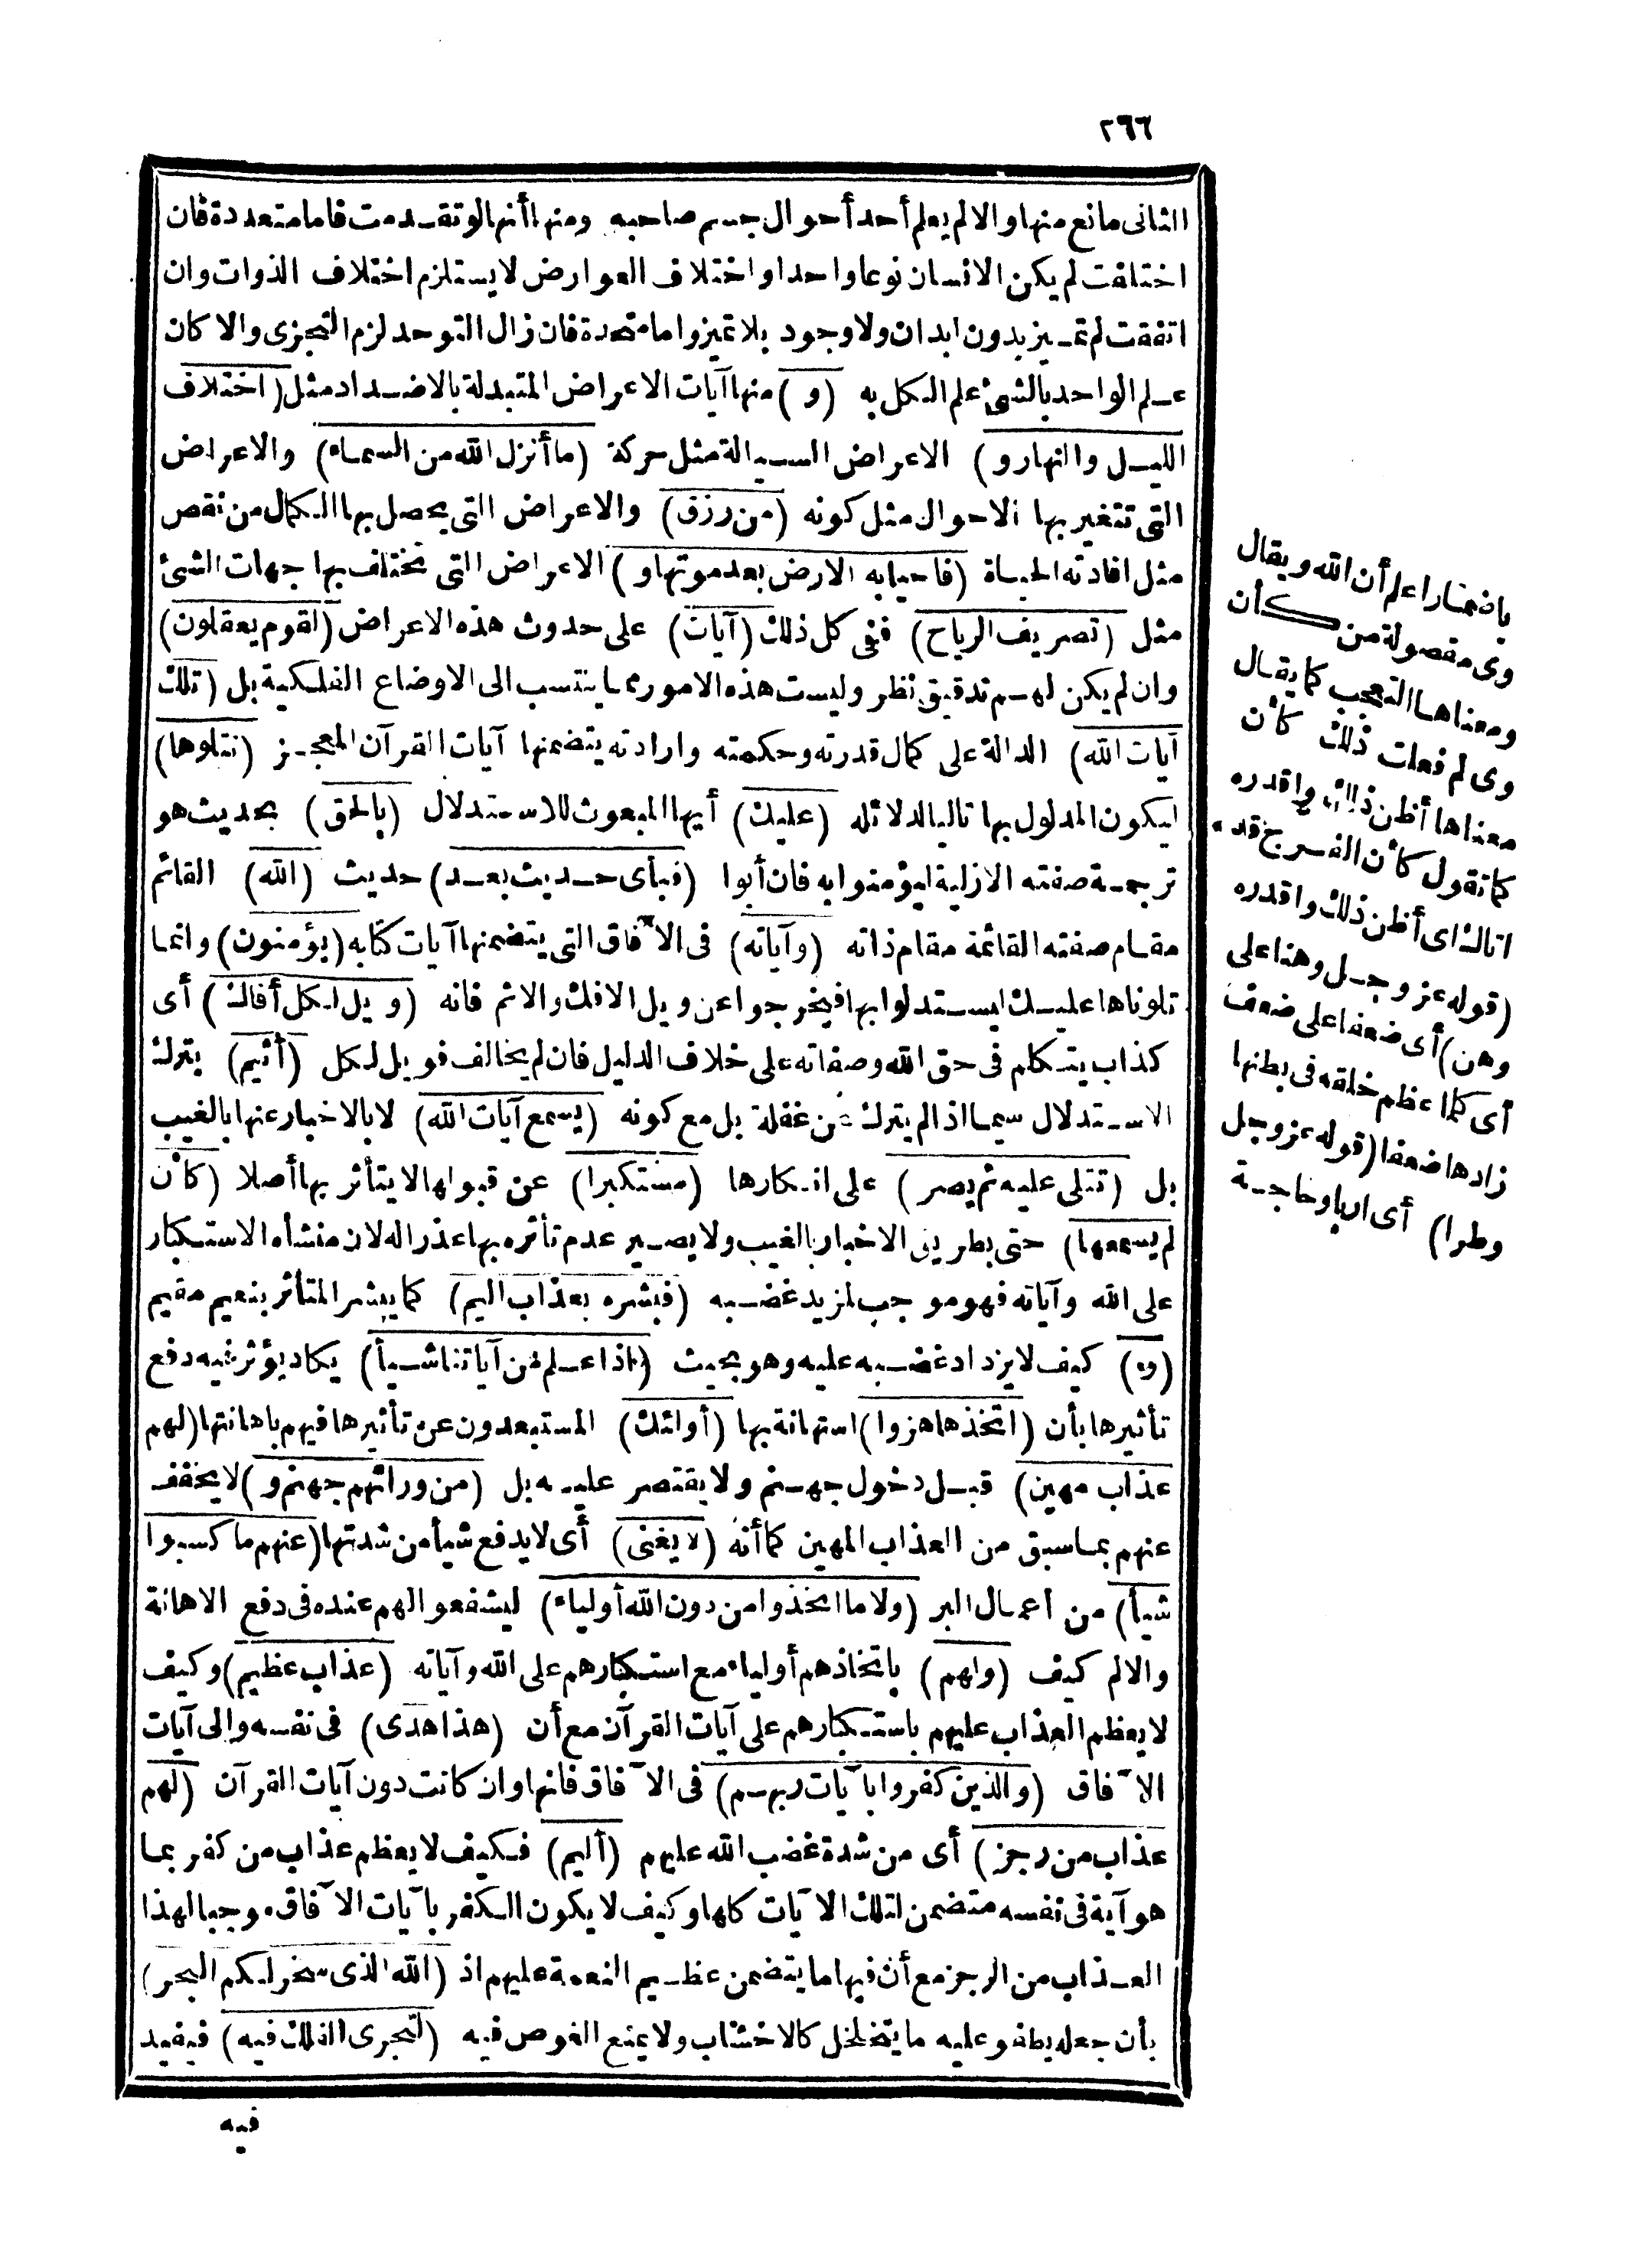 ٢٦٦
الثانى مانع منها والا لم يعلم أحد أحوال جسم صاحبه ومنها أنها لو تقدمت فاما متعددة فان
اختلفت لم يكن الانسان نوعا واحدا واختلاف العوارض لا يستلزم اختلاف الذوات وان
اتفقت لم تميز بدون ابدان ولا وجود بلا تميز واما متحدة فان زال التوحد لزم التجزى والا كان
علم الواحد بالشئ علم الكل به (و) منها آيات الاعراض المتبدلة بالاضداد مثل (اختلاف
الليل والنهار و) الاعراض السيالة مثل حركة (ما أنزل الله من السماء) والاعراض
التى تتغير بها الاحوال مثل كونه (من رزق) والاعراض التى يحصل بها الكمال من نقص
مثل افادته الحياة (فاحيا به الارض بعد موتها و) الاعراض التى تختلف بها جهات الشئ
مثل (تصريف الرياح) ففى كل ذلك (آيات) على حدوث هذه الاعراض (لقوم يعقلون)
وان لم يكن لهم تدقيق نظر وليست هذه الامور مما ينتسب الى الاوضاع الفلكية بل (تلك
آيات الله) الدالة على كمال قدرته وحكمته وارادته يتضمنها آيات القرآن المعجز (نتلوها)
ليكون المدلول بها تاليا لدلائله (عليك) أيها المبعوث للاستدلال (بالحق) بحديث هو
ترجمة صفته الازلية ليؤمنوا به فان أبوا (فبأى حديث بعد) حديث (الله) القائم
مقام صفته القائمة مقام ذاته (وآياته) فى الآفاق التى يتضمنها آيات كتابه (يؤمنون) وانما
تلوناها عليك ليستدلوا بها فيخرجوا عن ويل الافك والاثم فانه (ويل لكل أفاك) أى
كذاب يتكلم فى حق الله وصفاته على خلاف الدليل فان لم يخالف فويل لكل (أثيم) يترك
الاستدلال سيما اذا لم يترك عن غفلة بل مع كونه (يسمع آيات الله) لا بالاخبار عنها بالغيب
بل (تتلى عليه ثم يصر) على انكارها (مستكبرا) عن قبولها لا يتأثر بها أصلا (كأن
لم يسمعها) حتى بطريق الاخبار بالغيب ولا يصير عدم تأثره بها عذرا له لان منشأه الاستكبار
على الله وآياته فهو موجب لمزيد غضبه (فبشره بعذاب اليم) كما يبشر المتأثر بنعيم مقيم
(و) كيف لا يزداد غضبه عليه وهو بحيث (اذا علم من آياتنا شيأ) يكاد يؤثر فيه دفع
تأثيرها بأن (اتخذها هزوا) استهانة بها (أولئك) المستبعدون عن تأثيرها فيهم باهانتها (لهم
عذاب مهين) قبل دخول جهنم ولا يقتصر عليه بل (من ورائهم جهنم و) لا يخفف
عنهم بما سبق من العذاب المهين كما أنه (لا يغنى) أى لا يدفع شيأ من شدتها (عنهم ما كسبوا
شيأ) من أعمال البر (ولا ما اتخذوا من دون الله أولياء) ليشفعوا لهم عنده فى دفع الاهانة
والالم كيف (ولهم) باتخاذهم أولياء مع استكبارهم على الله وآياته (عذاب عظيم) وكيف
لا يعظم العذاب عليهم باستكبارهم على آيات القرآن مع أن (هذا هدى) فى نفسه والى آيات
الآفاق (والذين كفروا بآيات ربهم) فى الآفاق فانها وان كانت دون آيات القرآن (لهم
عذاب من رجز) أى من شدة غضب الله عليهم (أليم) فكيف لا يعظم عذاب من كفر بما
هو آية فى نفسه متضمن لتلك الآيات كلها وكيف لا يكون الكفر بآيات الآفاق موجبا لهذا
العذاب من الرجز مع أن فيها ما يتضمن عظيم النعمة عليهم اذ (الله الذى سخر لكم البحر)
بأن جعله يطفو عليه ما يتخلخل كالاخشاب ولا يمنع الغوص فيه (لتجرى الفلك فيه) فيفيد
فيه
باضمار اعلم أن الله ويقال
وى مفصولة من كأن
ومعناها التعجب كما يقال
وى لم فعلت ذلك كأن
معناها أظن ذلك واقدره
كما تقول كأن الفرج قد
اتاك اى أظن ذلك واقدره
(قوله عز وجل وهنا على
وهن) أى ضعفا على ضعف
أى كلما عظم خلقه فى بطنها
زادها ضعفا (قوله عز وجل
وطرا) أى اربا وحاجة